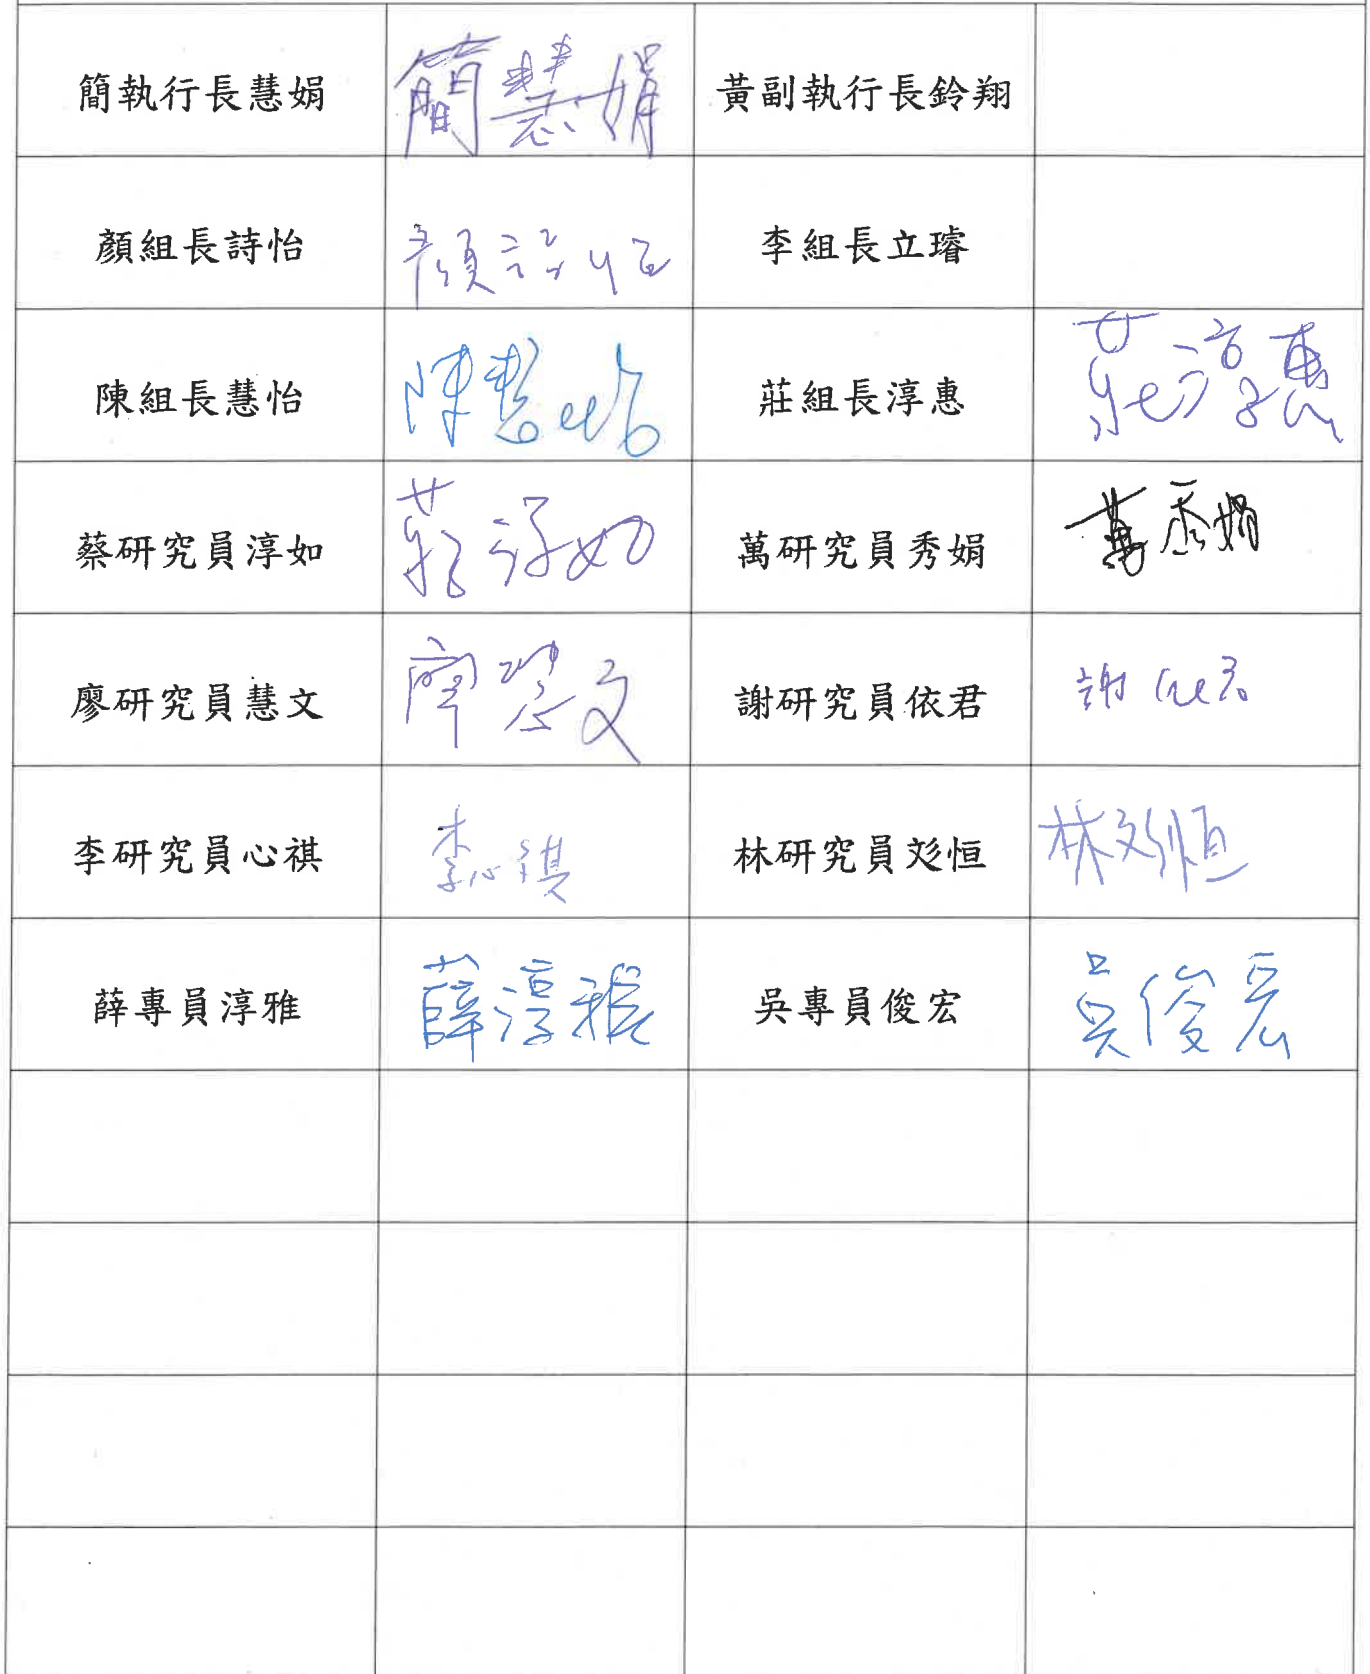 簡執行長慧娟 簡慧娟 黃副執行長鈴翔
顏組長詩怡 顏詩怡 李組長立璿
陳組長慧怡 陳慧怡 莊組長淳惠 莊淳惠
蔡研究員淳如 蔡淳如 萬研究員秀娟 萬秀娟
廖研究員慧文 廖慧文 謝研究員依君 謝依君
李研究員心祺 李心祺 林研究員彣恒 林彣恒
薛專員淳雅 薛淳雅 吳專員俊宏 吳俊宏